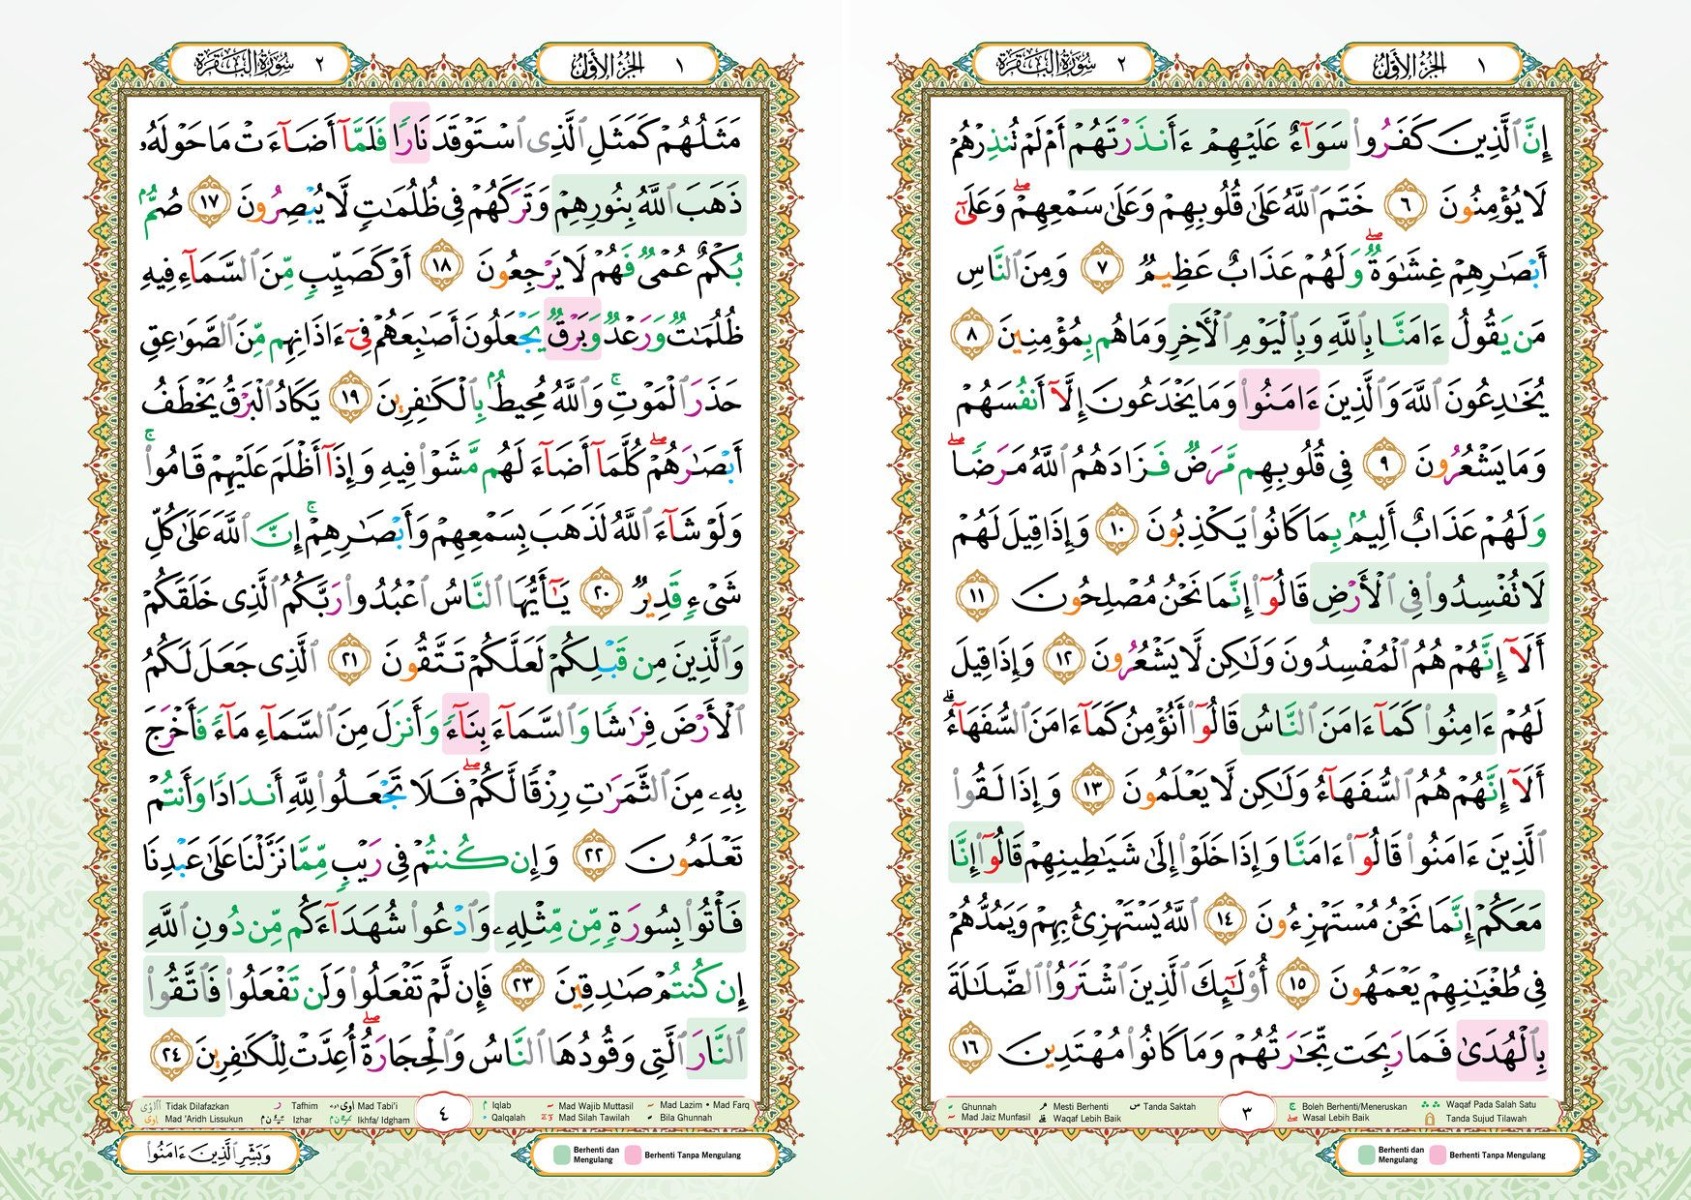 الجزء الأول ١
سورة البقرة ٢
إِنَّ ٱلَّذِينَ كَفَرُوا۟ سَوَآءٌ عَلَيْهِمْ ءَأَنذَرْتَهُمْ أَمْ لَمْ تُنذِرْهُمْ
لَا يُؤْمِنُونَ ٦ خَتَمَ ٱللَّهُ عَلَىٰ قُلُوبِهِمْ وَعَلَىٰ سَمْعِهِمْ ۖ وَعَلَىٰٓ
أَبْصَـٰرِهِمْ غِشَـٰوَةٌ ۖ وَلَهُمْ عَذَابٌ عَظِيمٌ ٧ وَمِنَ ٱلنَّاسِ
مَن يَقُولُ ءَامَنَّا بِٱللَّهِ وَبِٱلْيَوْمِ ٱلْـَٔاخِرِ وَمَا هُم بِمُؤْمِنِينَ ٨
يُخَـٰدِعُونَ ٱللَّهَ وَٱلَّذِينَ ءَامَنُوا۟ وَمَا يَخْدَعُونَ إِلَّآ أَنفُسَهُمْ
وَمَا يَشْعُرُونَ ٩ فِى قُلُوبِهِم مَّرَضٌ فَزَادَهُمُ ٱللَّهُ مَرَضًا ۖ
وَلَهُمْ عَذَابٌ أَلِيمٌۢ بِمَا كَانُوا۟ يَكْذِبُونَ ١٠ وَإِذَا قِيلَ لَهُمْ
لَا تُفْسِدُوا۟ فِى ٱلْأَرْضِ قَالُوٓا۟ إِنَّمَا نَحْنُ مُصْلِحُونَ ١١
أَلَآ إِنَّهُمْ هُمُ ٱلْمُفْسِدُونَ وَلَـٰكِن لَّا يَشْعُرُونَ ١٢ وَإِذَا قِيلَ
لَهُمْ ءَامِنُوا۟ كَمَآ ءَامَنَ ٱلنَّاسُ قَالُوٓا۟ أَنُؤْمِنُ كَمَآ ءَامَنَ ٱلسُّفَهَآءُ ۗ
أَلَآ إِنَّهُمْ هُمُ ٱلسُّفَهَآءُ وَلَـٰكِن لَّا يَعْلَمُونَ ١٣ وَإِذَا لَقُوا۟
ٱلَّذِينَ ءَامَنُوا۟ قَالُوٓا۟ ءَامَنَّا وَإِذَا خَلَوْا۟ إِلَىٰ شَيَـٰطِينِهِمْ قَالُوٓا۟ إِنَّا
مَعَكُمْ إِنَّمَا نَحْنُ مُسْتَهْزِءُونَ ١٤ ٱللَّهُ يَسْتَهْزِئُ بِهِمْ وَيَمُدُّهُمْ
فِى طُغْيَـٰنِهِمْ يَعْمَهُونَ ١٥ أُو۟لَـٰٓئِكَ ٱلَّذِينَ ٱشْتَرَوُا۟ ٱلضَّلَـٰلَةَ
بِٱلْهُدَىٰ فَمَا رَبِحَت تِّجَـٰرَتُهُمْ وَمَا كَانُوا۟ مُهْتَدِينَ ١٦
Ghunnah Mesti Berhenti Tanda Saktah ٣ Boleh Berhenti/Meneruskan Waqaf Pada Salah Satu
Mad Jaiz Munfasil Waqaf Lebih Baik Wasal Lebih Baik Tanda Sujud Tilawah
Berhenti dan Mengulang Berhenti Tanpa Mengulang
الجزء الأول ١
سورة البقرة ٢
مَثَلُهُمْ كَمَثَلِ ٱلَّذِى ٱسْتَوْقَدَ نَارًا فَلَمَّآ أَضَآءَتْ مَا حَوْلَهُۥ
ذَهَبَ ٱللَّهُ بِنُورِهِمْ وَتَرَكَهُمْ فِى ظُلُمَـٰتٍ لَّا يُبْصِرُونَ ١٧ صُمٌّۢ
بُكْمٌ عُمْىٌ فَهُمْ لَا يَرْجِعُونَ ١٨ أَوْ كَصَيِّبٍ مِّنَ ٱلسَّمَآءِ فِيهِ
ظُلُمَـٰتٌ وَرَعْدٌ وَبَرْقٌ يَجْعَلُونَ أَصَـٰبِعَهُمْ فِىٓ ءَاذَانِهِم مِّنَ ٱلصَّوَٰعِقِ
حَذَرَ ٱلْمَوْتِ ۚ وَٱللَّهُ مُحِيطٌۢ بِٱلْكَـٰفِرِينَ ١٩ يَكَادُ ٱلْبَرْقُ يَخْطَفُ
أَبْصَـٰرَهُمْ ۖ كُلَّمَآ أَضَآءَ لَهُم مَّشَوْا۟ فِيهِ وَإِذَآ أَظْلَمَ عَلَيْهِمْ قَامُوا۟ ۚ
وَلَوْ شَآءَ ٱللَّهُ لَذَهَبَ بِسَمْعِهِمْ وَأَبْصَـٰرِهِمْ ۚ إِنَّ ٱللَّهَ عَلَىٰ كُلِّ
شَىْءٍ قَدِيرٌ ٢٠ يَـٰٓأَيُّهَا ٱلنَّاسُ ٱعْبُدُوا۟ رَبَّكُمُ ٱلَّذِى خَلَقَكُمْ
وَٱلَّذِينَ مِن قَبْلِكُمْ لَعَلَّكُمْ تَتَّقُونَ ٢١ ٱلَّذِى جَعَلَ لَكُمُ
ٱلْأَرْضَ فِرَٰشًا وَٱلسَّمَآءَ بِنَآءً وَأَنزَلَ مِنَ ٱلسَّمَآءِ مَآءً فَأَخْرَجَ
بِهِۦ مِنَ ٱلثَّمَرَٰتِ رِزْقًا لَّكُمْ ۖ فَلَا تَجْعَلُوا۟ لِلَّهِ أَندَادًا وَأَنتُمْ
تَعْلَمُونَ ٢٢ وَإِن كُنتُمْ فِى رَيْبٍ مِّمَّا نَزَّلْنَا عَلَىٰ عَبْدِنَا
فَأْتُوا۟ بِسُورَةٍ مِّن مِّثْلِهِۦ وَٱدْعُوا۟ شُهَدَآءَكُم مِّن دُونِ ٱللَّهِ
إِن كُنتُمْ صَـٰدِقِينَ ٢٣ فَإِن لَّمْ تَفْعَلُوا۟ وَلَن تَفْعَلُوا۟ فَٱتَّقُوا۟
ٱلنَّارَ ٱلَّتِى وَقُودُهَا ٱلنَّاسُ وَٱلْحِجَارَةُ ۖ أُعِدَّتْ لِلْكَـٰفِرِينَ ٢٤
Tidak Dilafazkan Tafhim Mad Tabi'i ٤ Iqlab Mad Wajib Muttasil Mad Lazim • Mad Farq
Mad 'Aridh Lissukun Izhar Ikhfa/ Idgham Qalqalah Mad Silah Tawilah Bila Ghunnah
وَبَشِّرِ ٱلَّذِينَ ءَامَنُوا۟
Berhenti dan Mengulang Berhenti Tanpa Mengulang